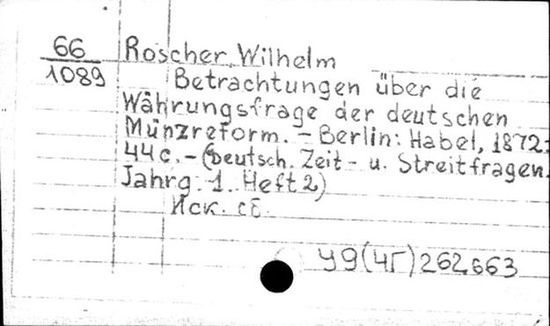 66
1089
Roscher, Wilhelm
Betrachtungen über die
Währungsfrage der deutschen
Münzreform. – Berlin: Habel, 1872.
44 с. – (Deutsch. Zeit- u. Streitfragen.
Jahrg. 1. Heft 2)
Иск. сб.
У9(4Г)262,663